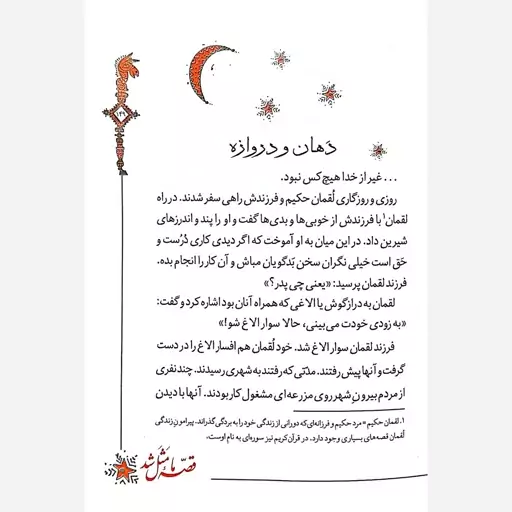 ۱۴۹
دَهان و دروازه
... غیر از خدا هیچ کس نبود.
روزی و روزگاری لُقمان حکیم و فرزندش راهی سفر شدند. در راه
لقمان۱ با فرزندش از خوبی‌ها و بدی‌ها گفت و او را پند و اندرزهای
شیرین داد. در این میان به او آموخت که اگر دیدی کاری دُرُست و
حَق است خیلی نگران سخن بَدگویان مباش و آن کار را انجام بده.
فرزند لقمان پرسید: «یعنی چی پدر؟»
لقمان به درازگوش یا الاغی که همراه آنان بود اشاره کرد و گفت:
«به زودی خودت می‌بینی، حالا سوار الاغ شو!»
فرزند لقمان سوار الاغ شد. خود لُقمان هم افسار الاغ را در دست
گرفت و آنها پیش رفتند. مدّتی که رفتند به شهری رسیدند. چند نفری
از مردم بیرونِ شهر روی مزرعه‌ای مشغول کار بودند. آنها با دیدن
۱. لقمان حکیم = مرد حکیم و فرزانه‌ای که دورانی از زندگی خود را به بردگی گذراند. پیرامون زندگی
لُقمان قصه‌های بسیاری وجود دارد. در قرآن کریم نیز سوره‌ای به نام اوست.
قصه ما مَثَل شد